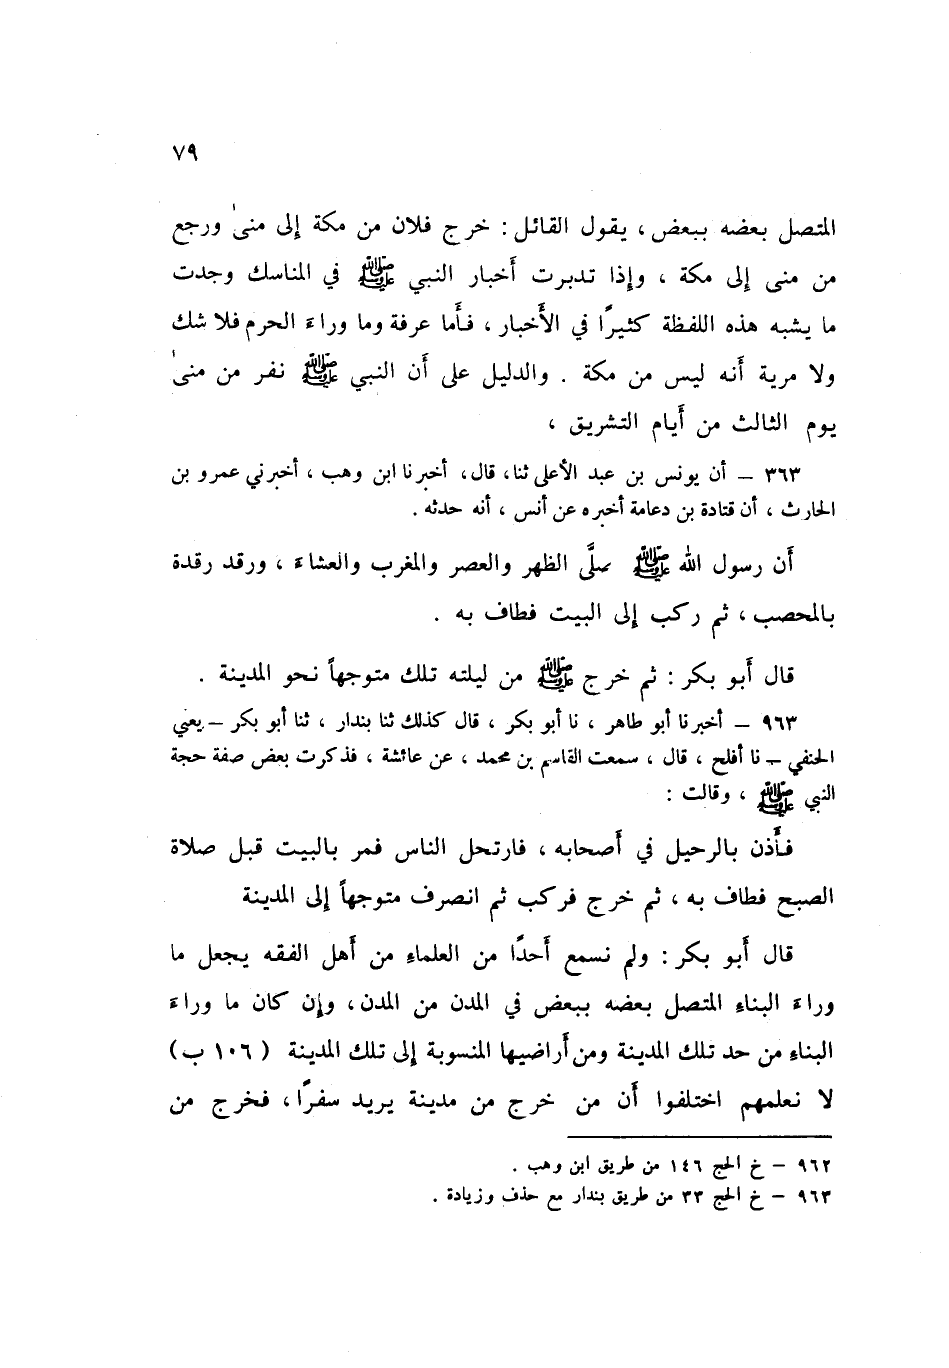 ٧٩
المتصل بعضه ببعض ، يقول القائل : خرج فلان من مكة إلى منىٰ ورجع
من منى إلى مكة ، وإذا تدبرت أخبار النبي ﷺ في المناسك وجدت
ما يشبه هذه اللفظة كثيرًا في الأخبار ، فأما عرفة وما وراء الحرم فلا شك
ولا مرية أنه ليس من مكة . والدليل على أن النبي ﷺ نفر من منىٰ
يوم الثالث من أيام التشريق ،
٣٦٣ – أن يونس بن عبد الأعلى ثنا، قال، أخبرنا ابن وهب ، أخبرني عمرو بن
الحارث ، أن قتادة بن دعامة أخبره عن أنس ، أنه حدثه .
أن رسول الله ﷺ صلَّى الظهر والعصر والمغرب والعشاء ، ورقد رقدة
بالمحصب ، ثم ركب إلى البيت فطاف به .
قال أبو بكر : ثم خرج ﷺ من ليلته تلك متوجهاً نحو المدينة .
٩٦٣ – أخبرنا أبو طاهر ، نا أبو بكر ، قال كذلك ثنا بندار ، ثنا أبو بكر – يعني
الحنفي – نا أفلح ، قال ، سمعت القاسم بن محمد ، عن عائشة ، فذكرت بعض صفة حجة
النبي ﷺ ، وقالت :
فأذن بالرحيل في أصحابه ، فارتحل الناس فمر بالبيت قبل صلاة
الصبح فطاف به ، ثم خرج فركب ثم انصرف متوجهاً إلى المدينة
قال أبو بكر : ولم نسمع أحدًا من العلماء من أهل الفقه يجعل ما
وراء البناء المتصل بعضه ببعض في المدن من المدن ، وإن كان ما وراء
البناء من حد تلك المدينة ومن أراضيها المنسوبة إلى تلك المدينة ( ١٠٦ ب )
لا نعلمهم اختلفوا أن من خرج من مدينة يريد سفرًا ، فخرج من
٩٦٢ – خ الحج ١٤٦ من طريق ابن وهب .
٩٦٣ – خ الحج ٣٣ من طريق بندار مع حذف وزيادة .